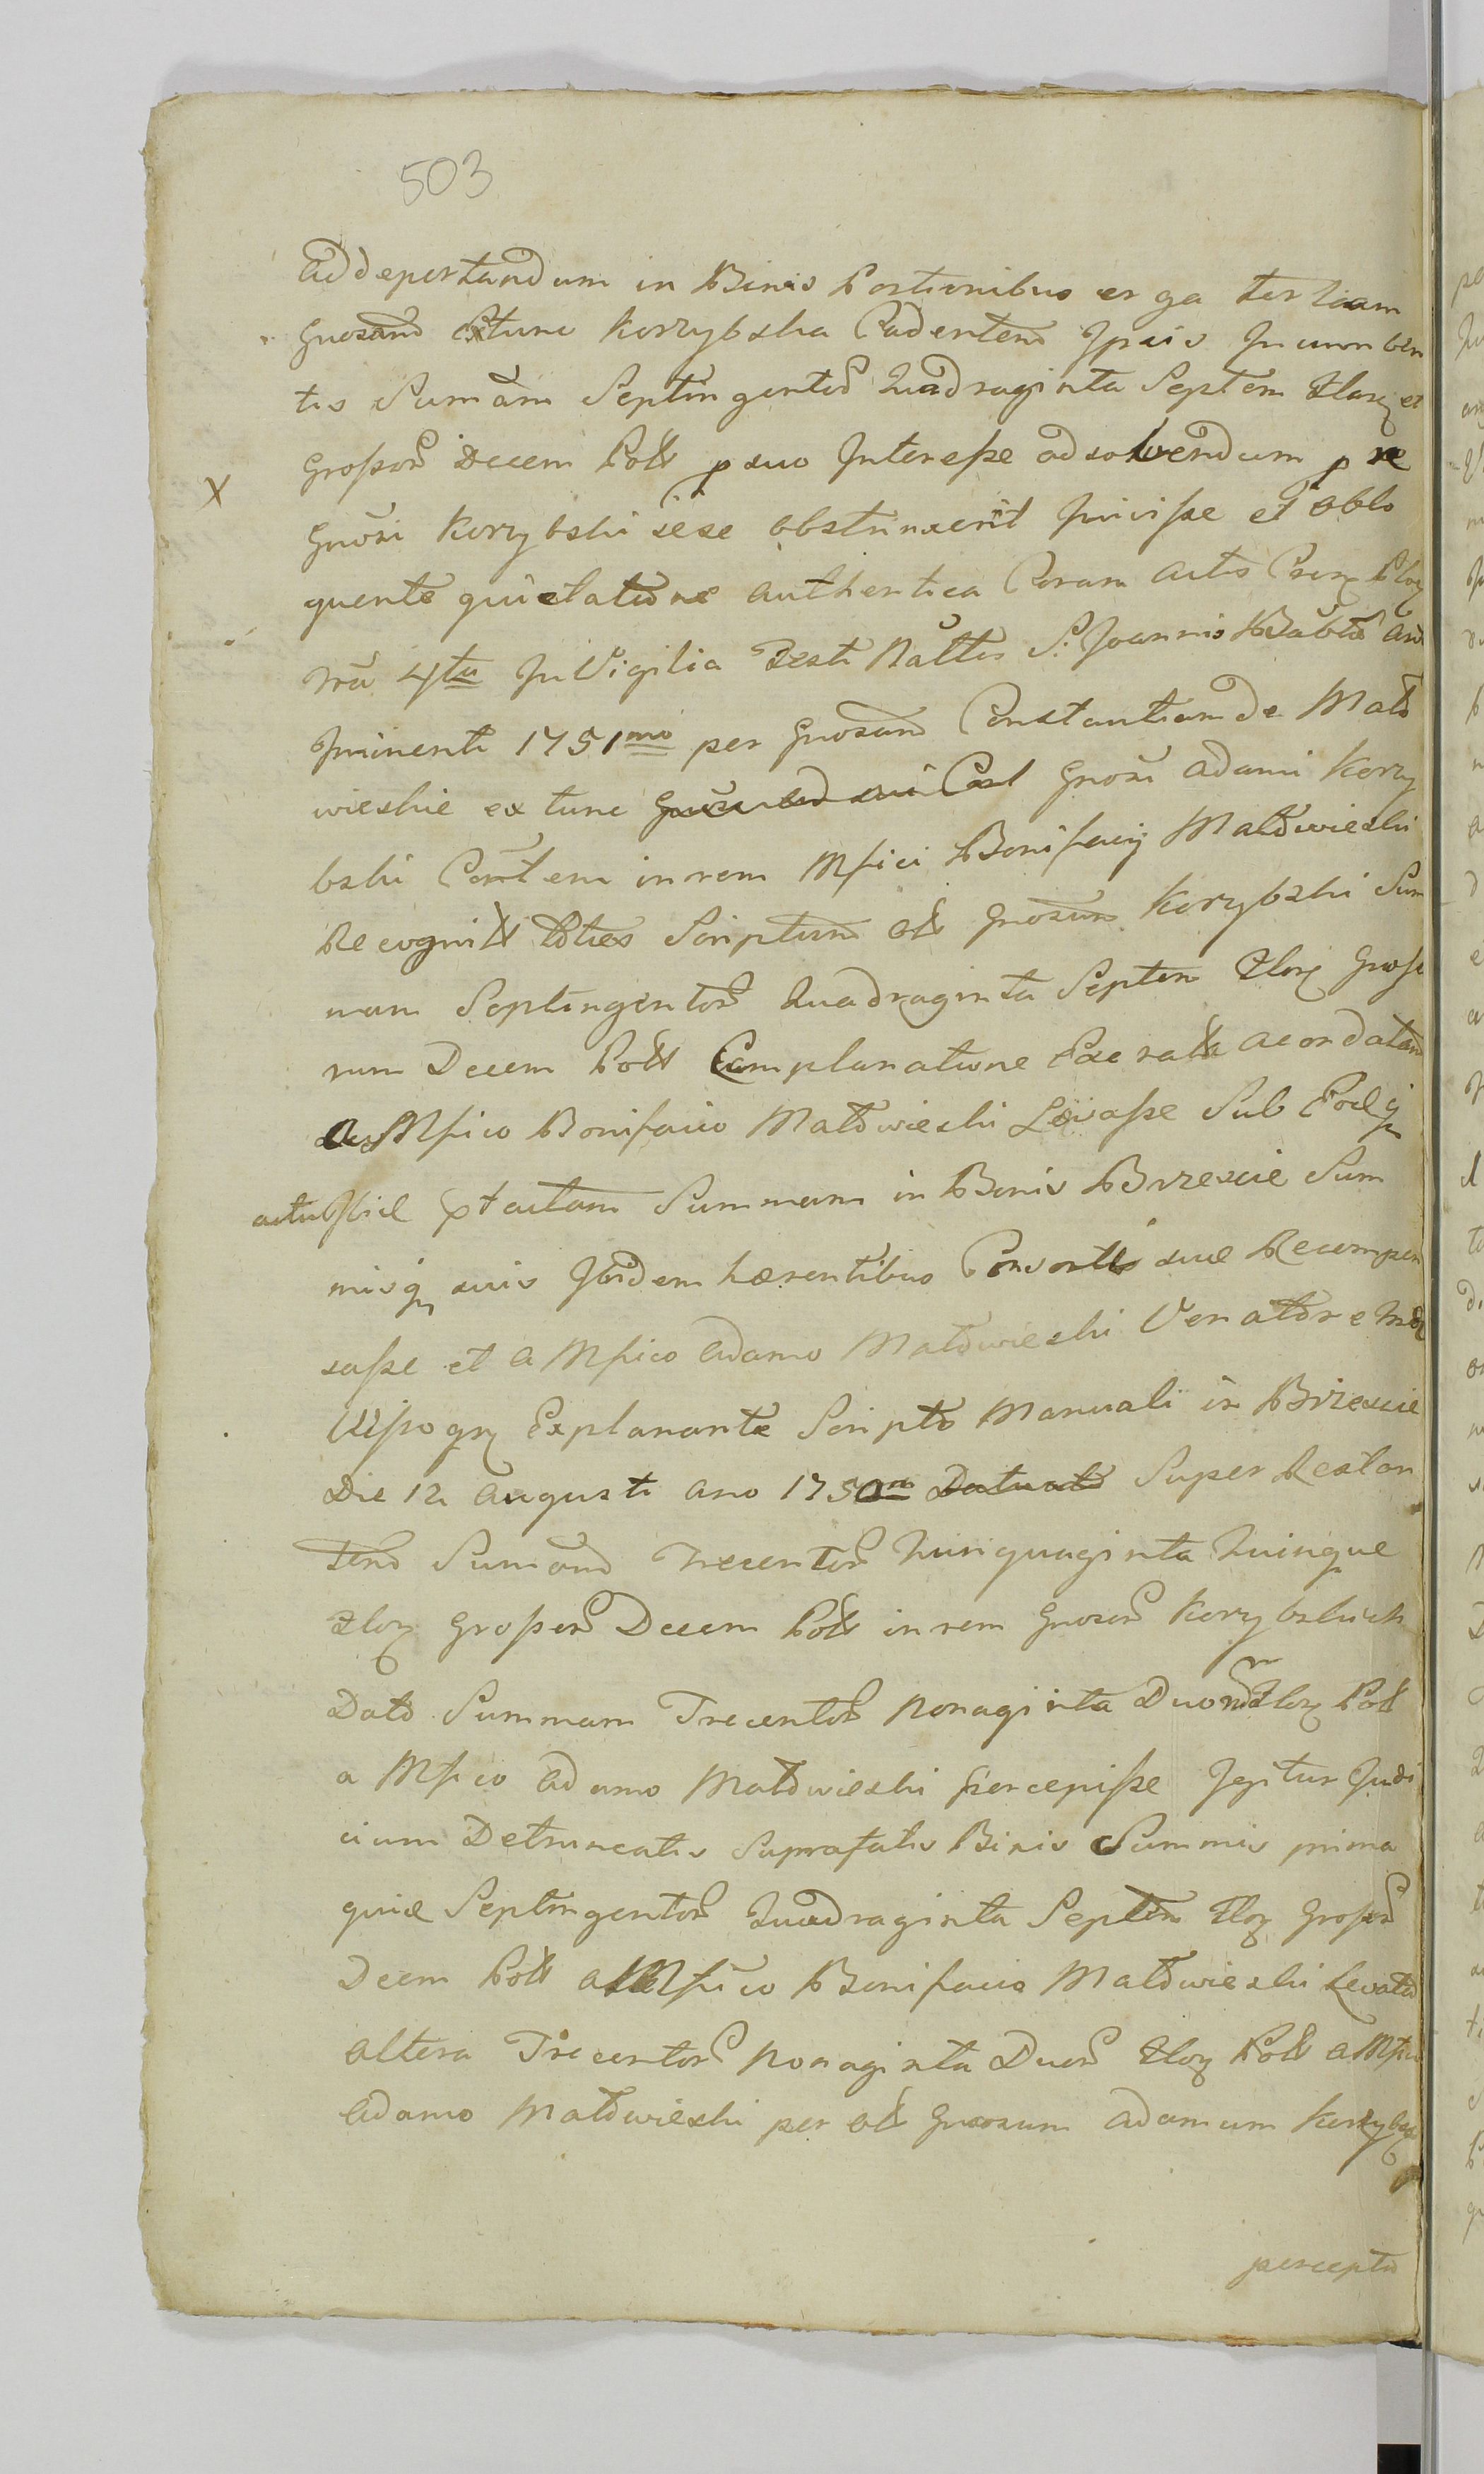 503
addeportandum in Binis Portionibus erga tertiam
Gnosam Extunc Korzybska Cadentem Ipsis Incumben
tis Sumam Septingentor Quadraginta Septem Zlorz et
Grossor Decem Poll p suo Interesse adsolvendum p se
X
Gnosi Korzybski sese obstrinxerit Inivisse et oblo
quente quietatione authentica Coram actis
4ta In Vigilia Festi Nattis S. Joannis Babtae
Iminenti 1751mo per Gnosam Constantiam de Mato
wieskie extunc Gnosi Adami Korzy
bski Contem in rem Mfici Bonifacij Matowieski
Recognitt toties Scriptum Gnosum Korzybski Sum
mam Septingentor Quadraginta Septem Zlorz Grosso
rum Decem Poll Complanatione acordatam
a Mfico Bonifacio Matowieski Levasse Sub
Summam in Bonis Brzescie Sum
misq suis Ibidem haerentibus Consorti suae Recompen
sasse et a Mfico Adamo Matowieski Venatore
Explanante Scripto Manuali in Brzescie
Die 12 Augusti Ano 1750 Super Restan
tem Sumam Trecentor Quinquaginta Quinque
Zlorz Grossor Decem Poll in rem Gnosor Korzybskich
Dato Summam Trecentor Nonaginta Duor Zlorz Poll
a Mfico Adamo Matowieski percepisse Igitur Judi
cium Detruncatis Suprafatis Binis Summis prima
quise Septingentor Quadraginta Septem Zlorz Grossor
Decem Poll a Mfico Bonifacio Matowieski Levata
altera Trecentor Nonaginta Duor Zlorz Poll a Mfico
Adamo Matowieski per Gnosum Adamum Korzybs
percepta